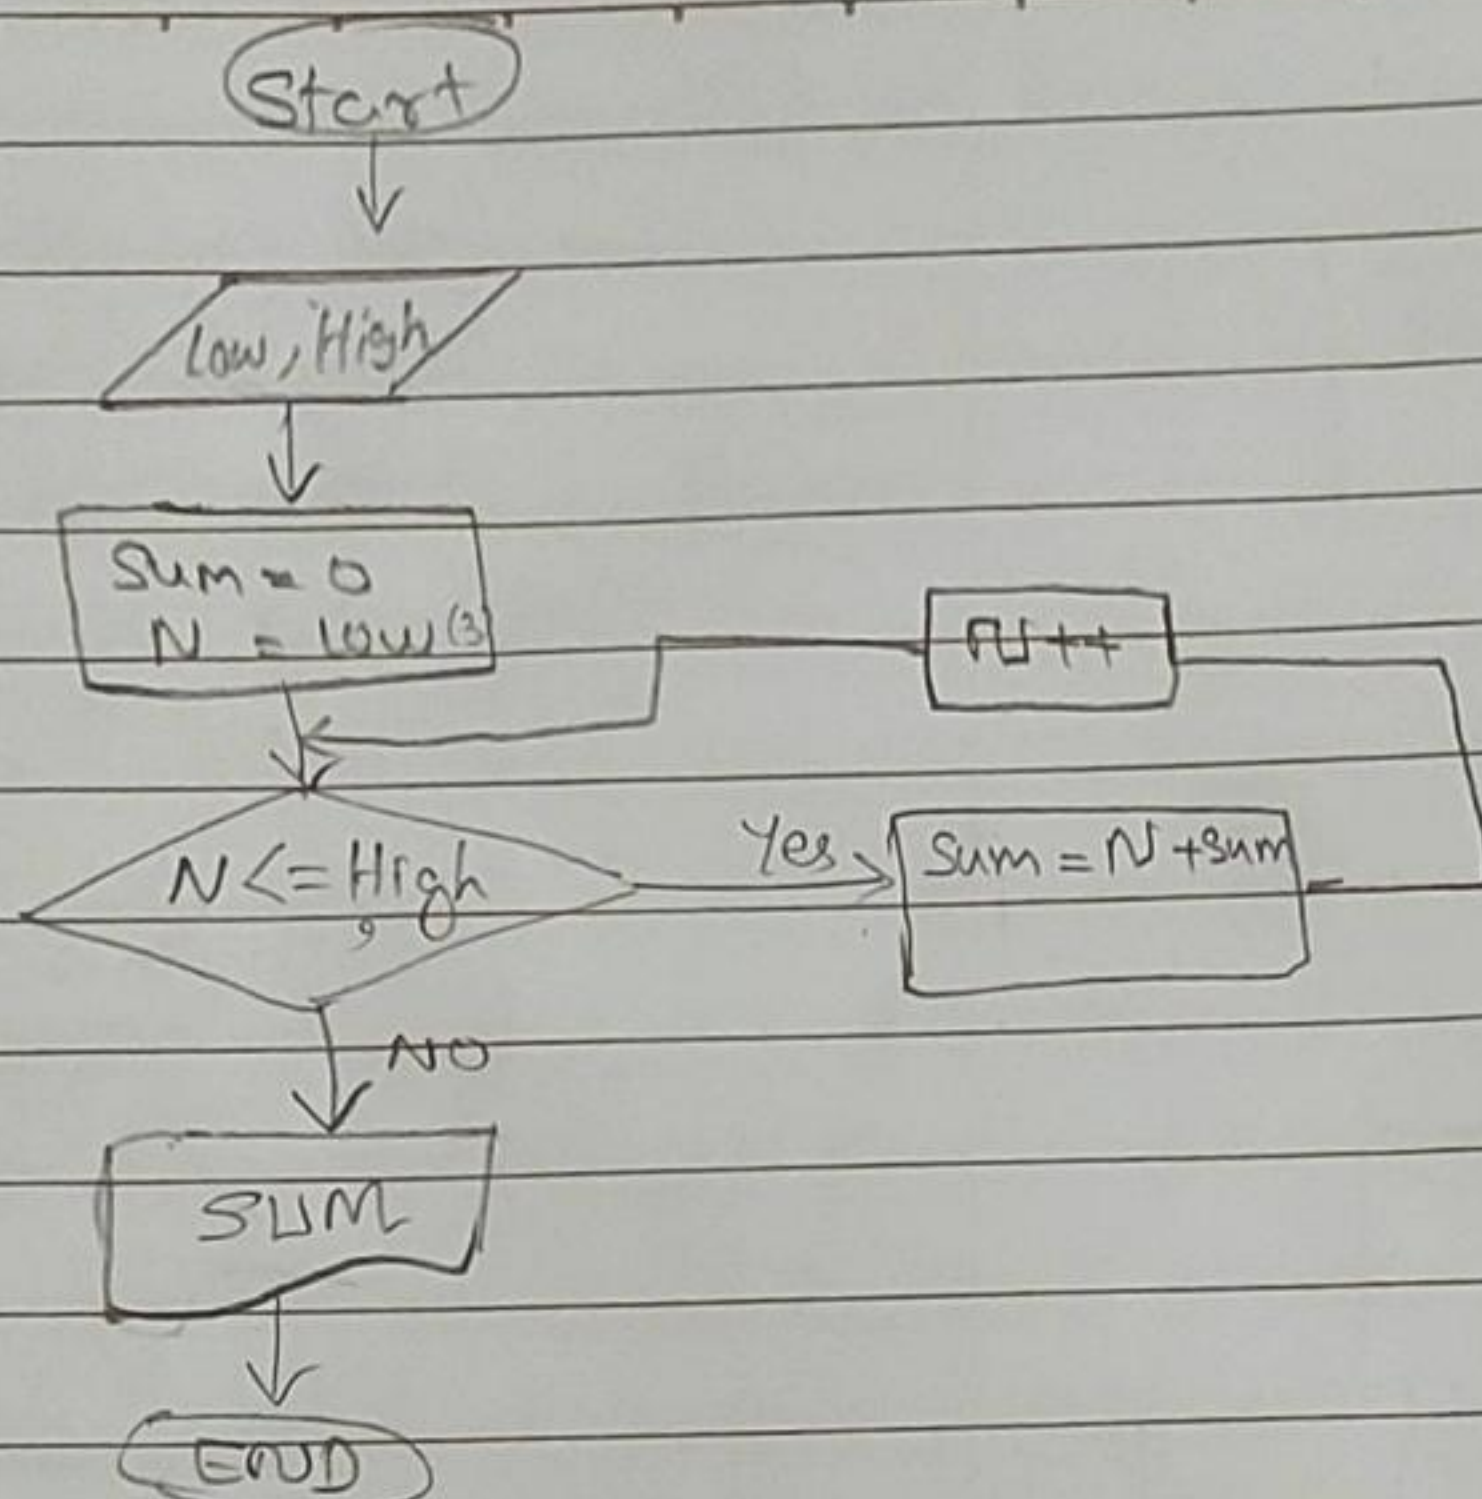 Start
Low, High
Sum = 0
N = low (3
N++
N <= High
Yes
Sum = N + Sum
9
NO
SUM
END